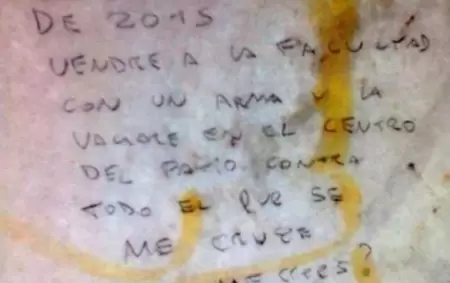 DE 2015
VENDRE A LA FACULTAD
CON UN ARMA Y LA
VACIARE EN EL CENTRO
DEL PATIO CONTRA
TODO EL QUE SE
ME CRUZE
ME CREES?